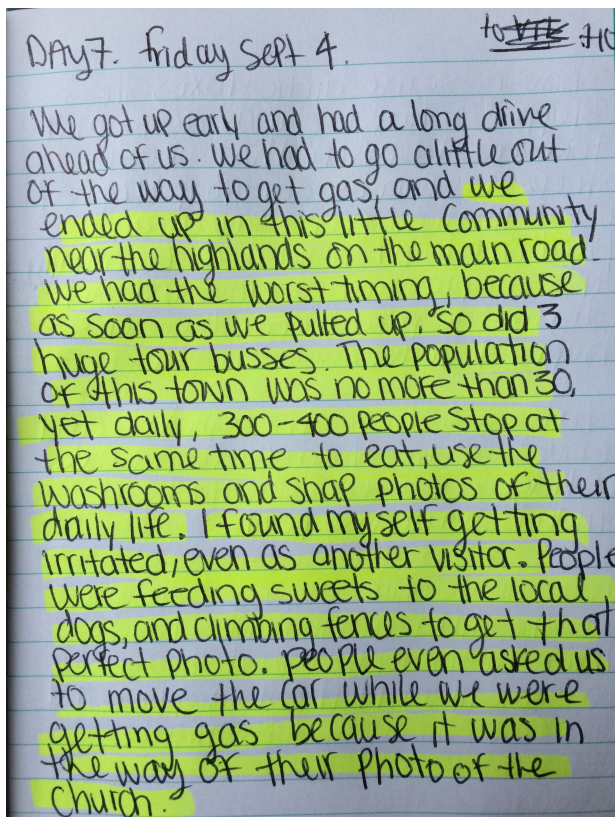 to
DAy 7. friday Sept 4.
We got up early and had a long drive
ahead of us. We had to go alittle out
of the way to get gas, and we
ended up in this little Community
near the highlands on the main road.
we had the worst timing, because
as soon as we pulled up, so did 3
huge tour busses. The population
of this town was no more than 30,
yet daily, 300-400 people stop at
the same time to eat, use the
washrooms and snap photos of their
daily life. I found myself getting
irritated, even as another visitor. People
were feeding sweets to the local
dogs, and climbing fences to get that
perfect photo. people even asked us
to move the car while we were
getting gas because it was in
the way of their photo of the
church.